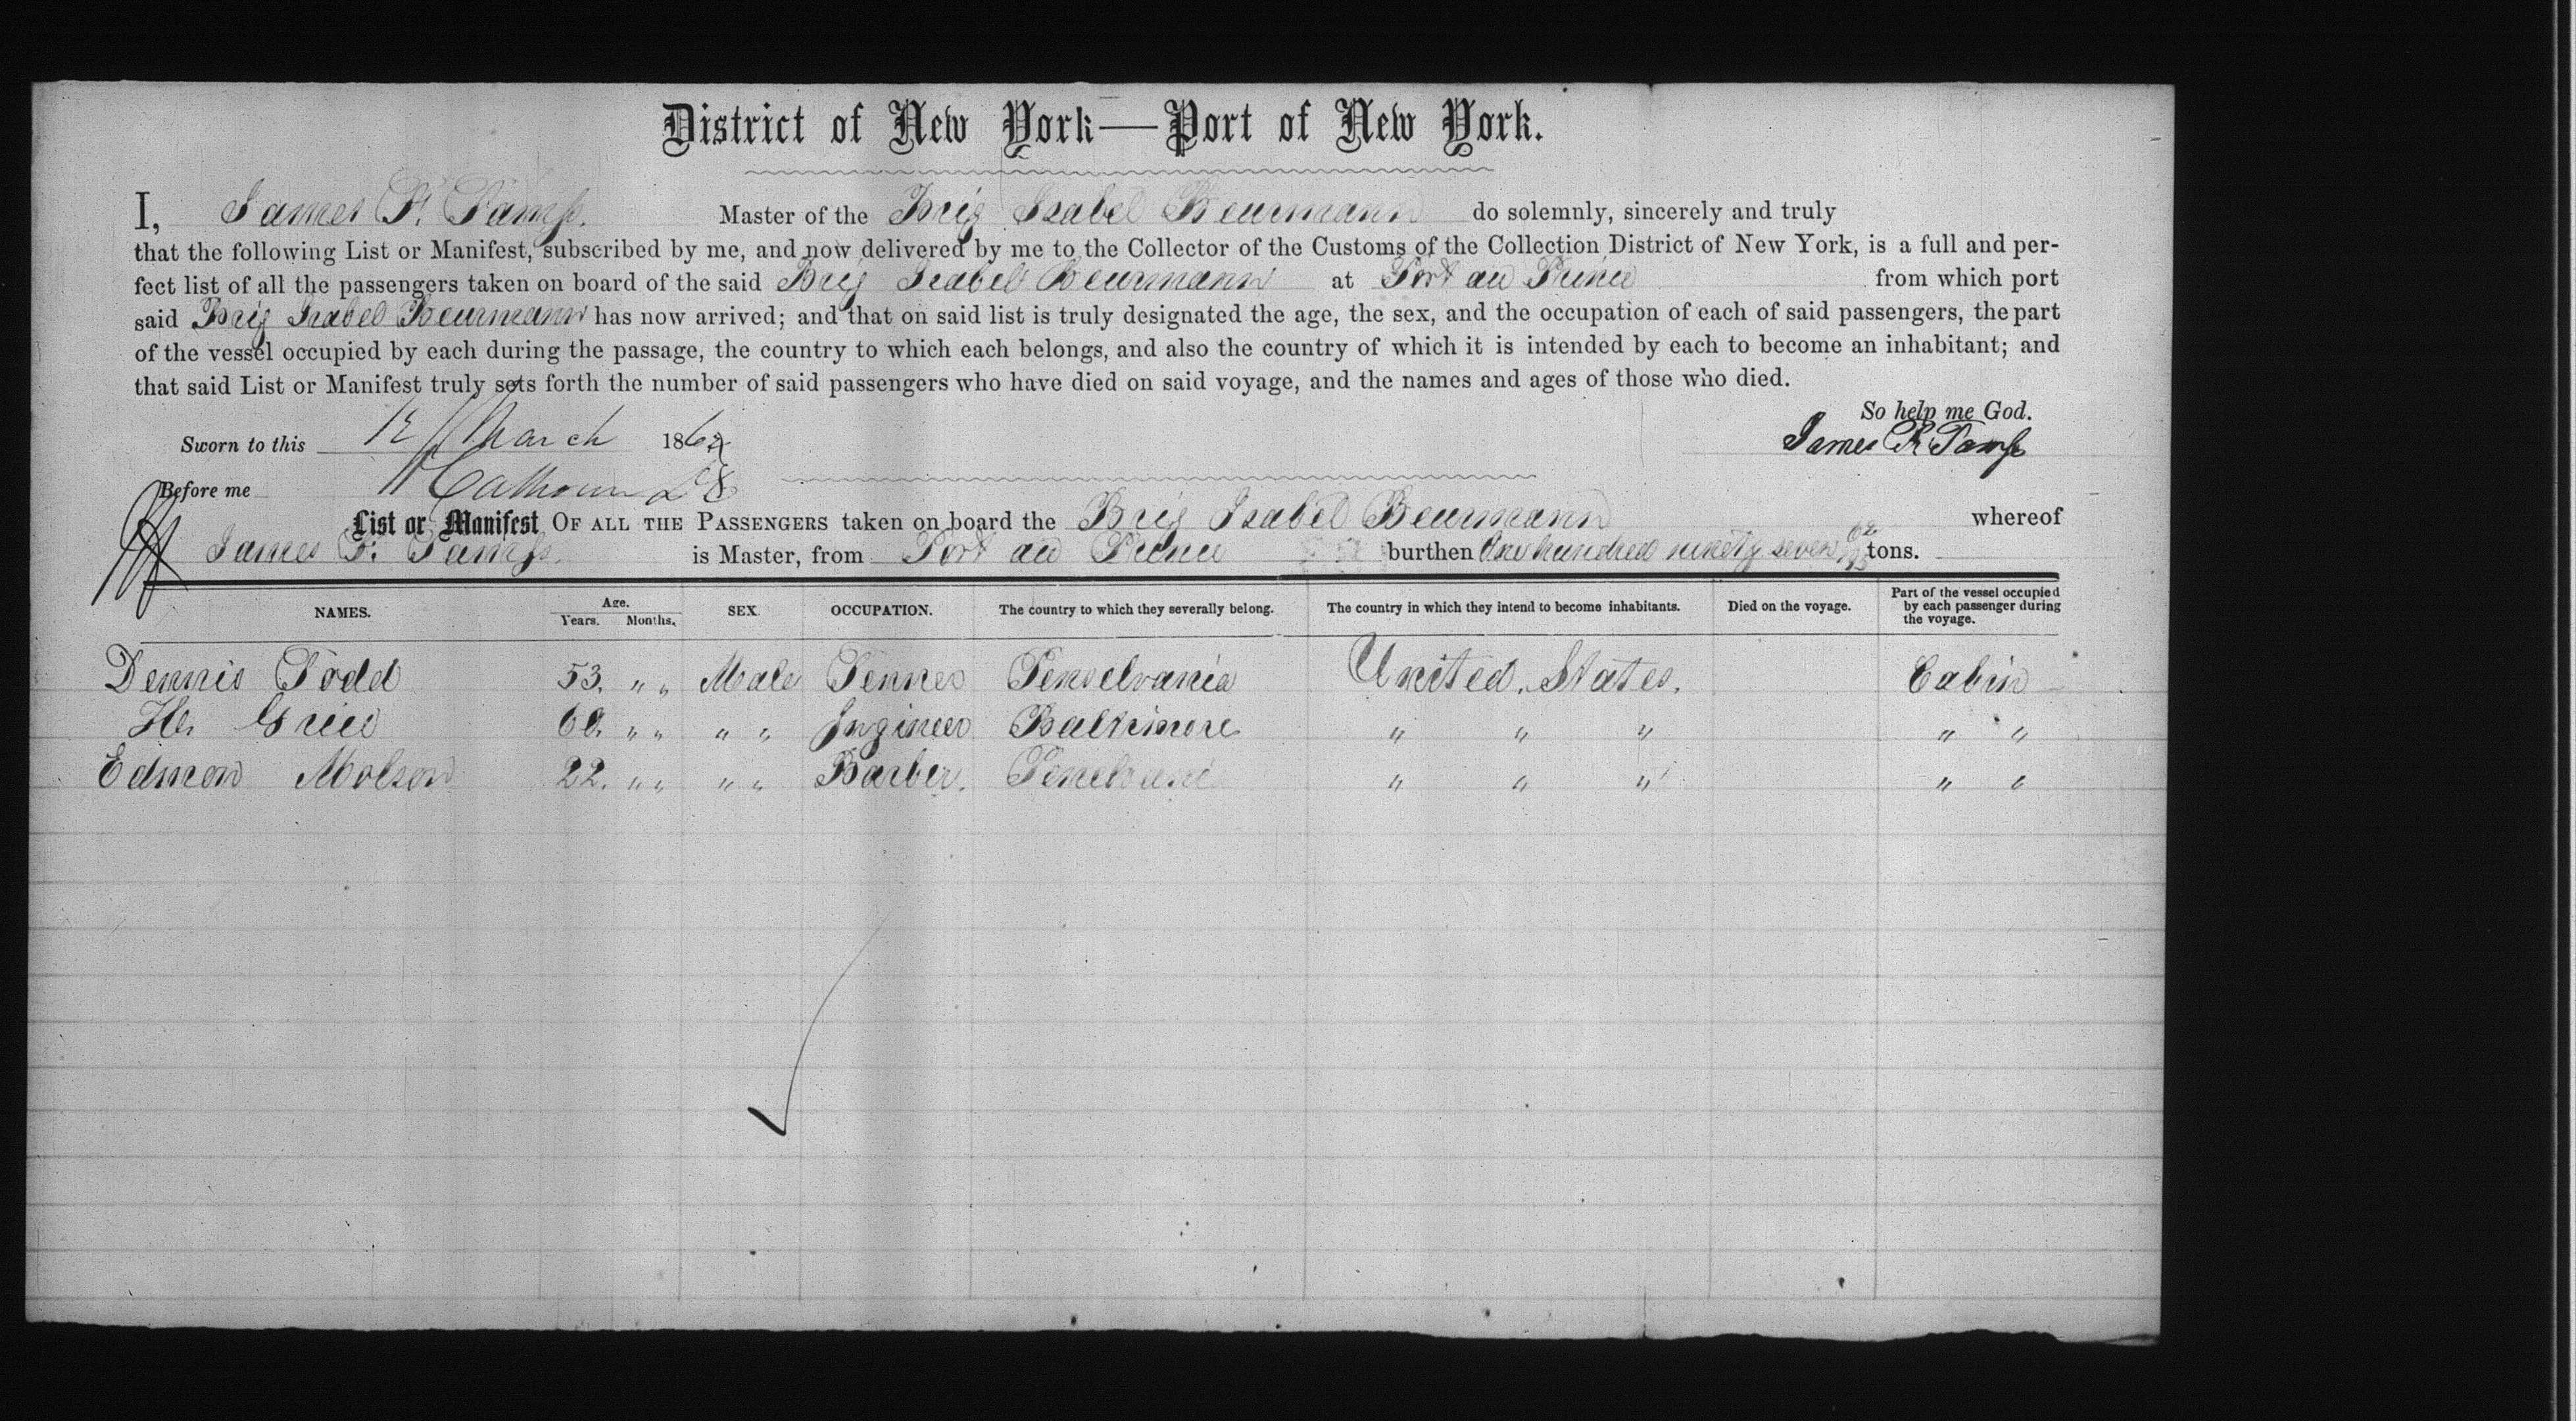 District of New York—Port of New York.
I, James F. Tamp. Master of the Brig Isabel Beurmann do solemnly, sincerely and truly
that the following List or Manifest, subscribed by me, and now delivered by me to the Collector of the Customs of the Collection District of New York, is a full and per-
fect list of all the passengers taken on board of the said Brig Isabel Beurmann at Port au Prince from which port
said Brig Isabel Beurmann has now arrived; and that on said list is truly designated the age, the sex, and the occupation of each of said passengers, the part
of the vessel occupied by each during the passage, the country to which each belongs, and also the country of which it is intended by each to become an inhabitant; and
that said List or Manifest truly sets forth the number of said passengers who have died on said voyage, and the names and ages of those who died.
So help me God.
Sworn to this 12 March 1862
James F. Tamp
Before me Calhoun
List or Manifest OF ALL THE PASSENGERS taken on board the Brig Isabel Beurmann whereof
James F. Tamp. is Master, from Port au Prince burthen One hundred ninety seven tons.
NAMES. Age. Years. Months. SEX. OCCUPATION. The country to which they severally belong. The country in which they intend to become inhabitants. Died on the voyage. Part of the vessel occupied by each passenger during the voyage.
Dennis Todd 53. " " Male Penselvania United States. Cabin
Grice 60. " " " " Ingineer Baltimore " " " " "
Edmon Molson 22. " " " " Barber. " " " " "